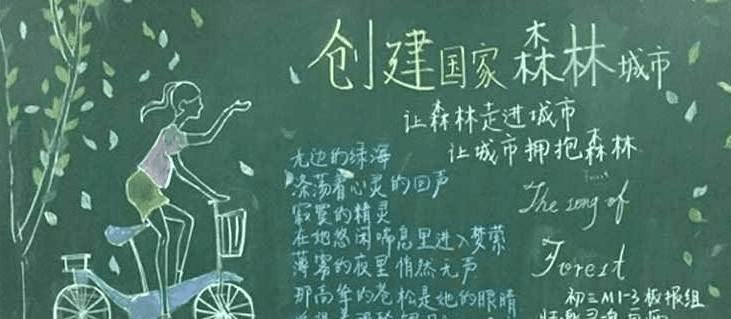 创建国家森林城市
让森林走进城市
让城市拥抱森林
无边的绿海
涤荡着心灵的回声
寂寞的精灵
在她悠闲喘息里进入梦萦
薄雾的夜里悄然无声
那高耸的苍松是她的眼睛
Forest
The song of
Forest
初三M1-3板报组